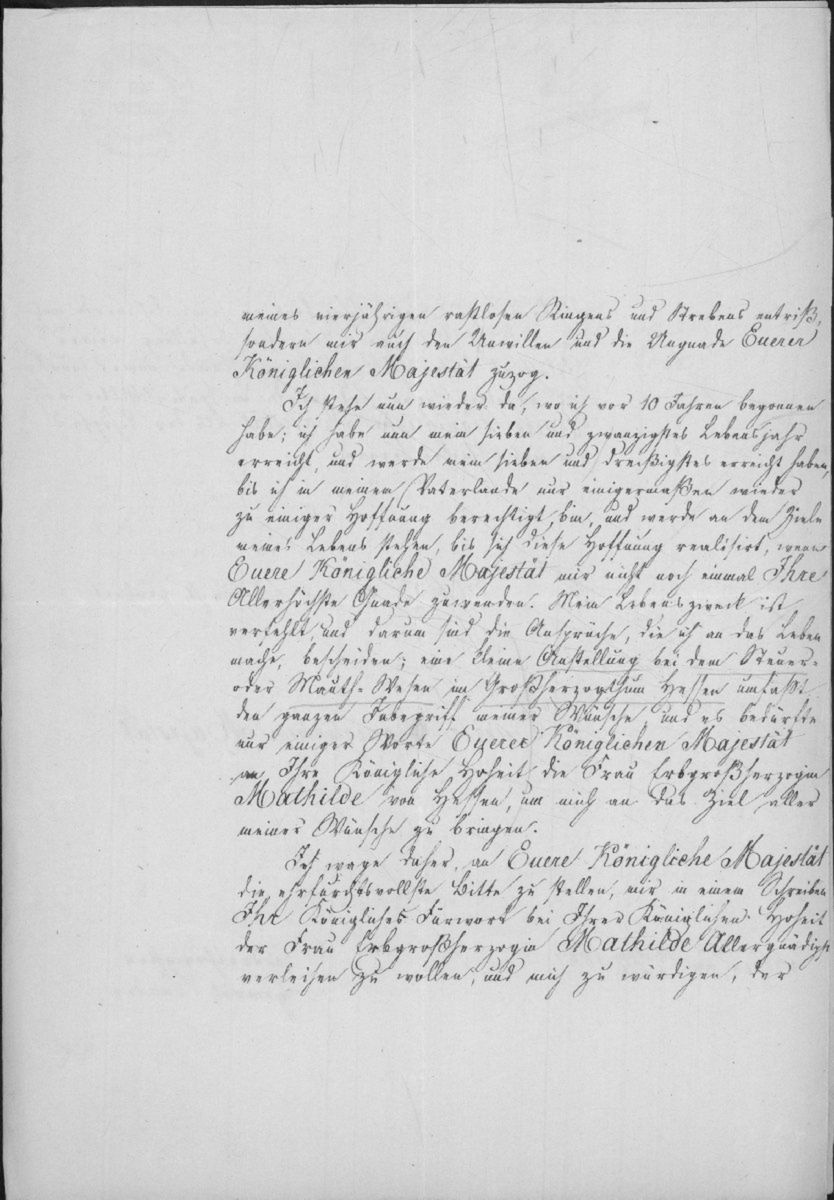 meines vierjährigen rastlosen Ringens und Strebens entriß,
sondern mir auch den Unwillen und die Ungnade Euerer
Königlichen Majestät zuzog.
Ich stehe nun wieder da, wo ich vor 10 Jahren begonnen
habe; ich habe nun mein sieben und zwanzigstes Lebensjahr
erreicht, und werde mein sieben und dreißigstes erreicht haben,
bis ich in meinem Vaterlande nur einigermaßen wieder
zu einiger Hoffnung berechtigt bin, und werde an dem Ziele
meines Lebens stehen, bis sich diese Hoffnung realisirt, wenn
Euere Königliche Majestät mir nicht noch einmal Ihre
Allerhöchste Gnade zuwenden. Mein Lebenszweck ist
verfehlt, und darum sind die Ansprüche, die ich an das Leben
mache, bescheiden; eine kleine Anstellung bei dem Steuer-
oder Mauth-Wesen im Großherzogthum Hessen umfaßt
den ganzen Inbegriff meiner Wünsche, und es bedürfte
nur einiger Worte Euerer Königlichen Majestät
an Ihre Königliche Hoheit die Frau Erbgroßherzogin
Mathilde von Hessen, um mich an das Ziel aller
meiner Wünsche zu bringen.
Ich wage daher, an Euere Königliche Majestät
die ehrfurchtsvollste Bitte zu stellen, mir in einem Schreiben
Ihr Königliches Fürwort bei Ihrer Königlichen Hoheit
der Frau Erbgroßherzogin Mathilde Allergnädigst
verleihen zu wollen, und mich zu würdigen, der